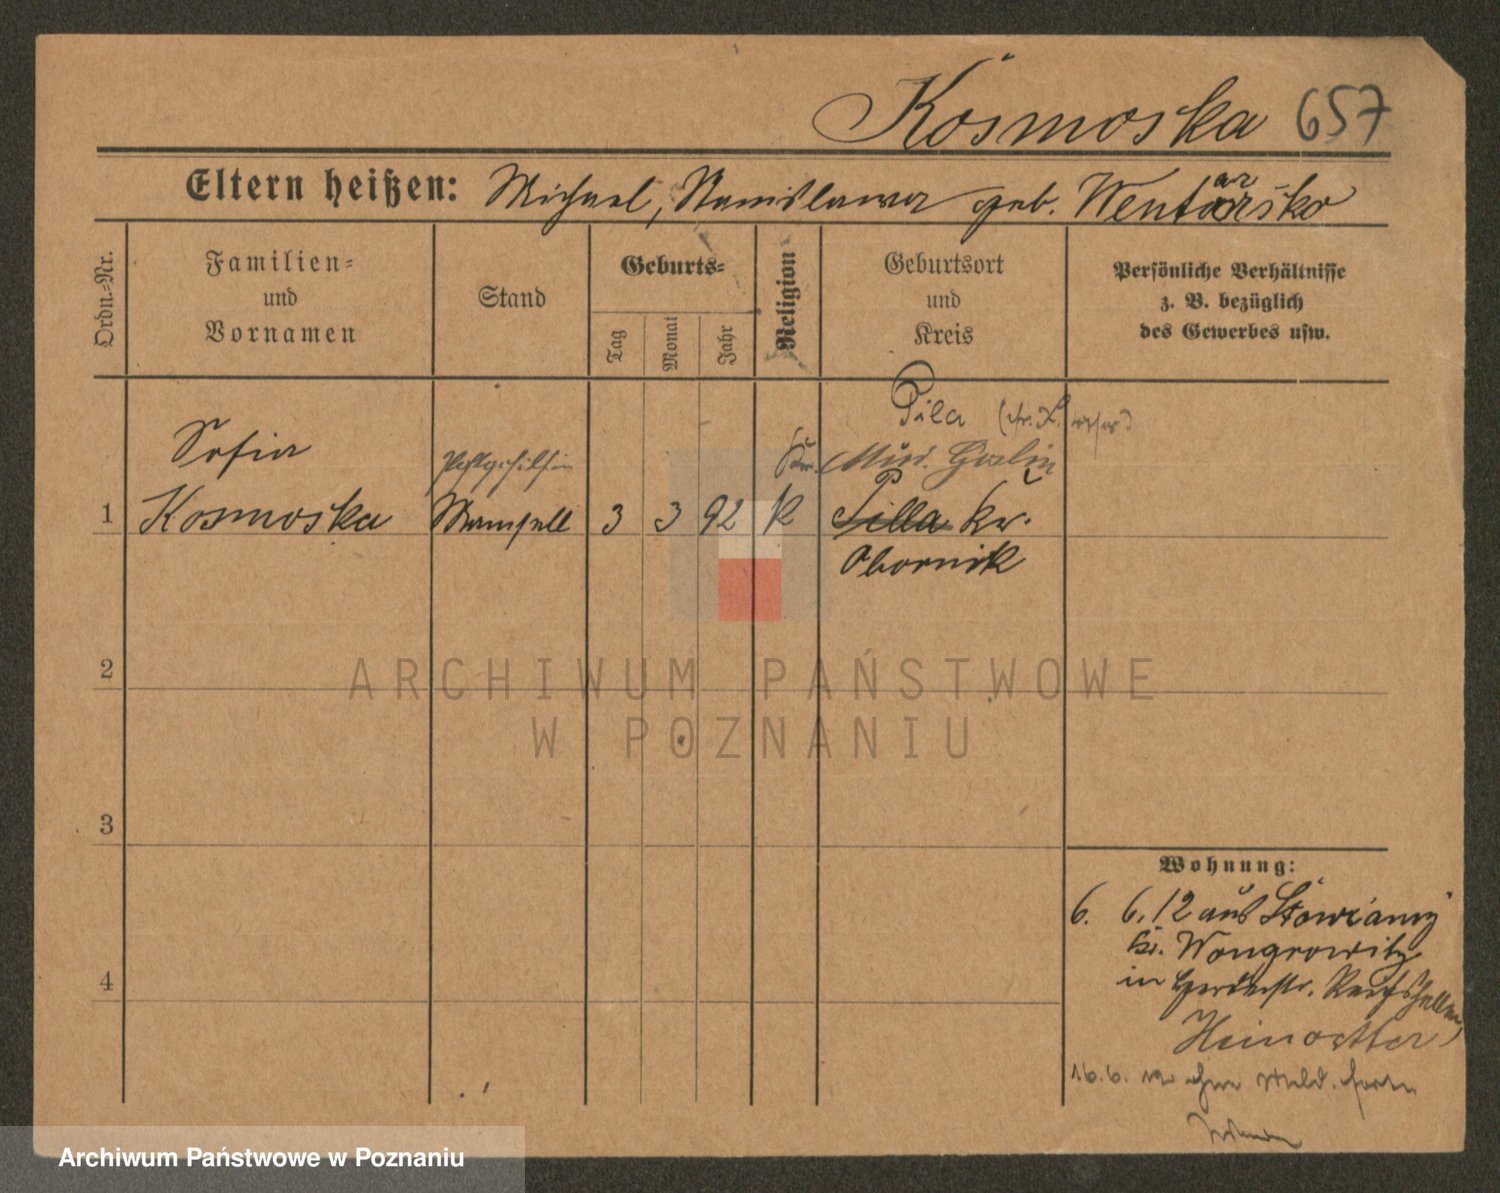 Kosmoska 657
Eltern heißen: Michael, Stanislawa geb.
Ordn.-Nr.
Familien-
und
Vornamen
Stand
Geburts-
Tag
Monat
Jahr
Religion
Geburtsort
und
Kreis
Persönliche Verhältnisse
z. B. bezüglich
des Gewerbes usw.
Pila
Sofia
Mur. Goslin
1 Kosmoska Mamsell 3 3 92 K Pilla Kr.
Obornik
2
ARCHIWUM PAŃSTWOWE
W POZNANIU
3
Wohnung:
6. 6. 12 aus
Kr. Wongrowitz
4
in
16. 6.
Archiwum Państwowe w Poznaniu